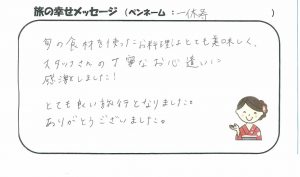 旅の幸せメッセージ（ペンネーム：一休寿）
旬の食材を使ったお料理はとても美味しく、
スタッフさんの丁寧なお心遣いに
感激しました！
とても良い旅行となりました。
ありがとうございました。